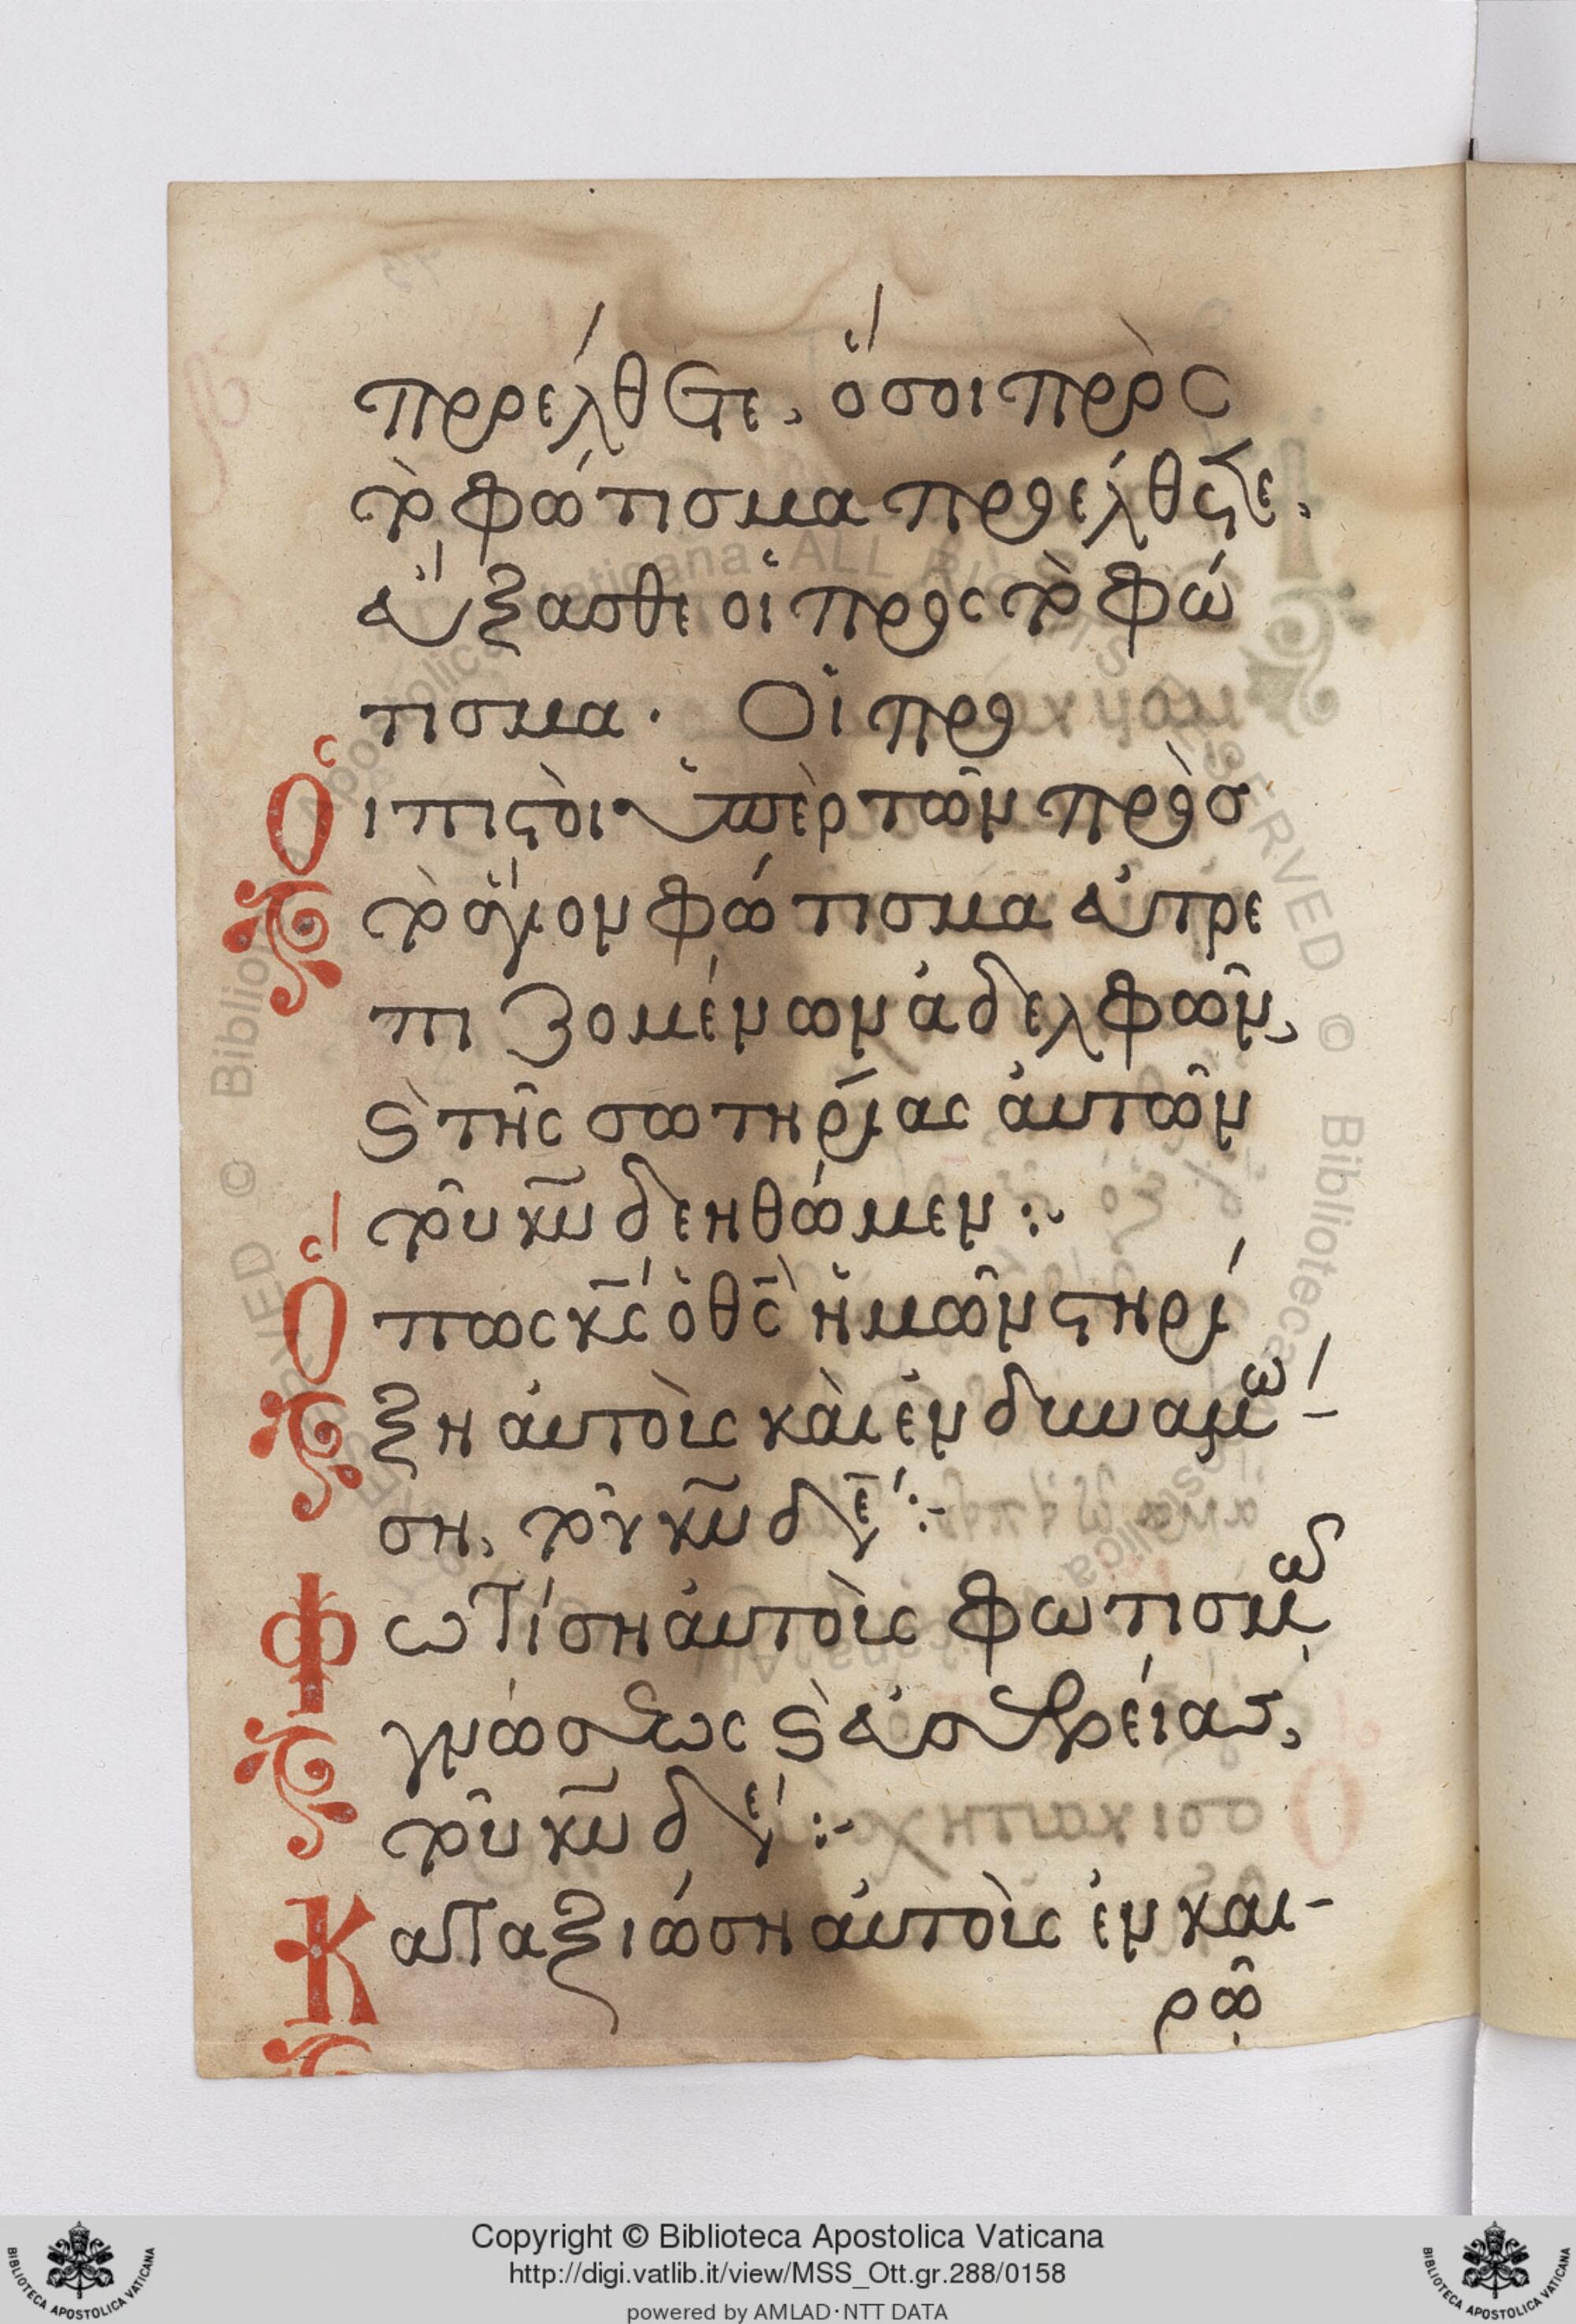 προέλθετε, ὅσοι πρὸς
τὸ φώτισμα προσέλθετε,
εὔξασθε οἱ πρὸς τὸ φώ
τισμα. Οἱ πρὸ
Οἱ πιστοὶ ὑπὲρ τῶν πρὸσ
τὸ ἅγιον φώτισμα εὐτρε
πιζομένων ἀδελφῶν,
ϗ τῆς σωτηρίας αὐτῶν
τοῦ κυ̅ δεηθῶμεν :~
Ὅπως κς̅ ὁ θς̅ ἡμῶν στηρί
ξη αὐτοὺς καὶ ἐνδυναμώ-
ση, τοῦ κυ̅ δεη :-
Φωτίση αὐτοὺς φωτισμῶ
γνώσεως ϗ εὐσεβείας,
τοῦ κυ̅ δεη :-
Καταξιώση αὐτοὺς ἐν και-
ρῷ
Copyright © Biblioteca Apostolica Vaticana
http://digi.vatlib.it/view/MSS_Ott.gr.288/0158
powered by AMLAD·NTT DATA
BIBLIOTECA APOSTOLICA VATICANA
BIBLIOTECA APOSTOLICA VATICANA